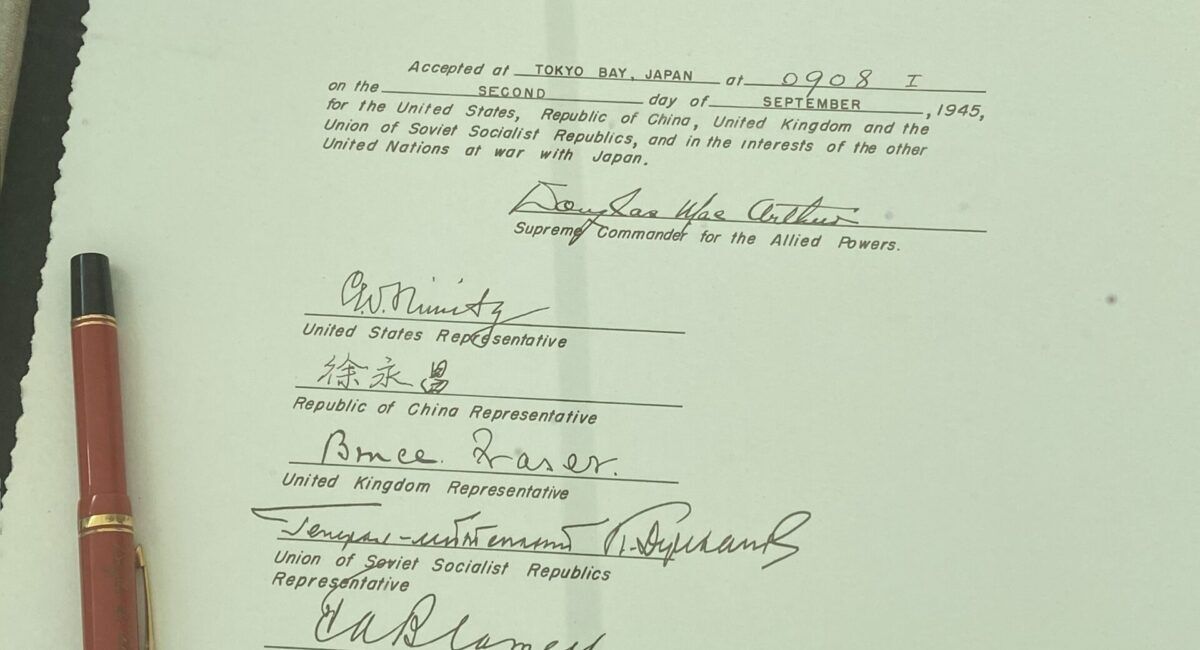 Accepted at TOKYO BAY, JAPAN at 0908 I
on the SECOND day of SEPTEMBER, 1945,
for the United States, Republic of China, United Kingdom and the
Union of Soviet Socialist Republics, and in the interests of the other
United Nations at war with Japan.
Douglas MacArthur
Supreme Commander for the Allied Powers.
C.W. Nimitz
United States Representative
徐永昌
Republic of China Representative
Bruce Fraser.
United Kingdom Representative
Генерал-лейтенант
Union of Soviet Socialist Republics
Representative
TA Blamey